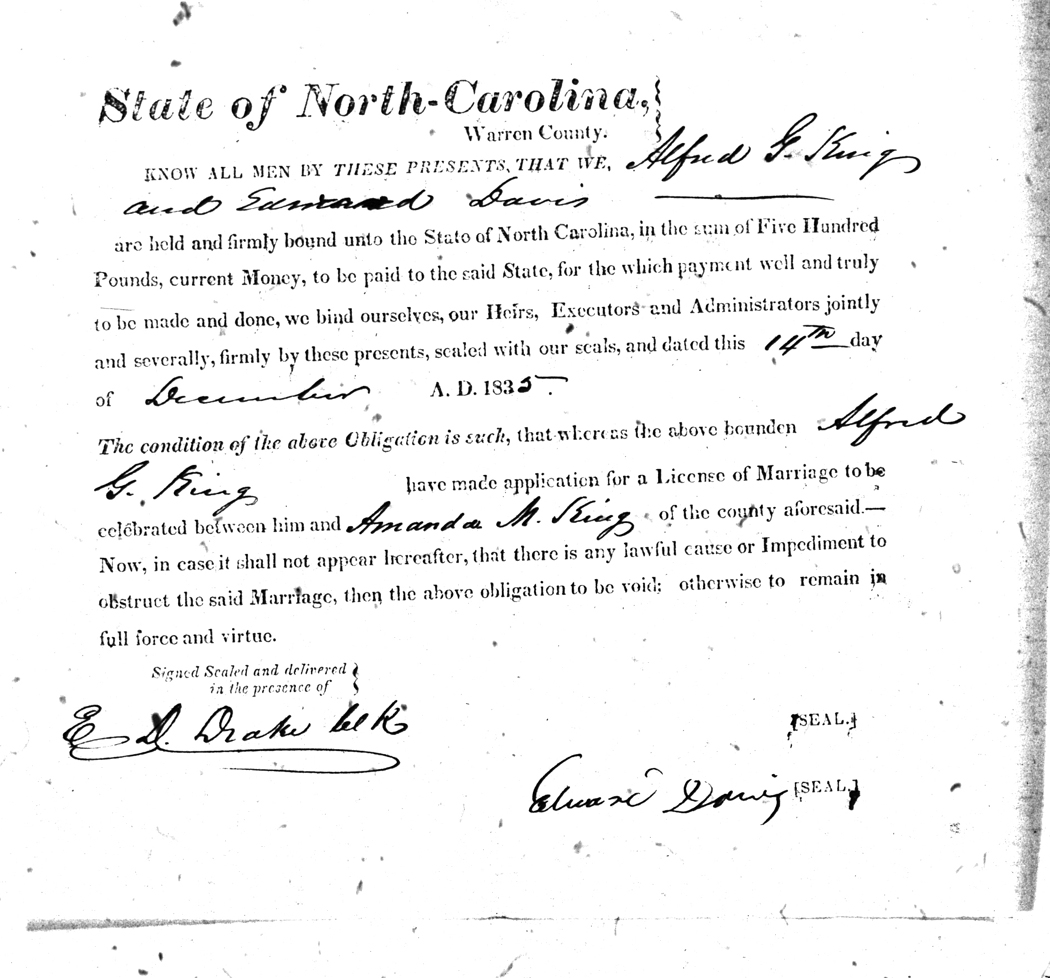 State of North-Carolina,
Warren County.
KNOW ALL MEN BY THESE PRESENTS, THAT WE, Alfred G. King
and Edmond Davis
are held and firmly bound unto the State of North Carolina, in the sum of Five Hundred
Pounds, current Money, to be paid to the said State, for the which payment well and truly
to be made and done, we bind ourselves, our Heirs, Executors and Administrators jointly
and severally, firmly by these presents, sealed with our seals, and dated this 14th day
of December A. D. 1835.
The condition of the above Obligation is such, that whereas the above bounden Alfred
G. King have made application for a License of Marriage to be
celebrated between him and Amanda M. King of the county aforesaid.—
Now, in case it shall not appear hereafter, that there is any lawful cause or Impediment to
obstruct the said Marriage, then the above obligation to be void; otherwise to remain in
full force and virtue.
Signed Sealed and delivered
in the presence of
E. D. Drake clk
[SEAL.]
Davis [SEAL.]